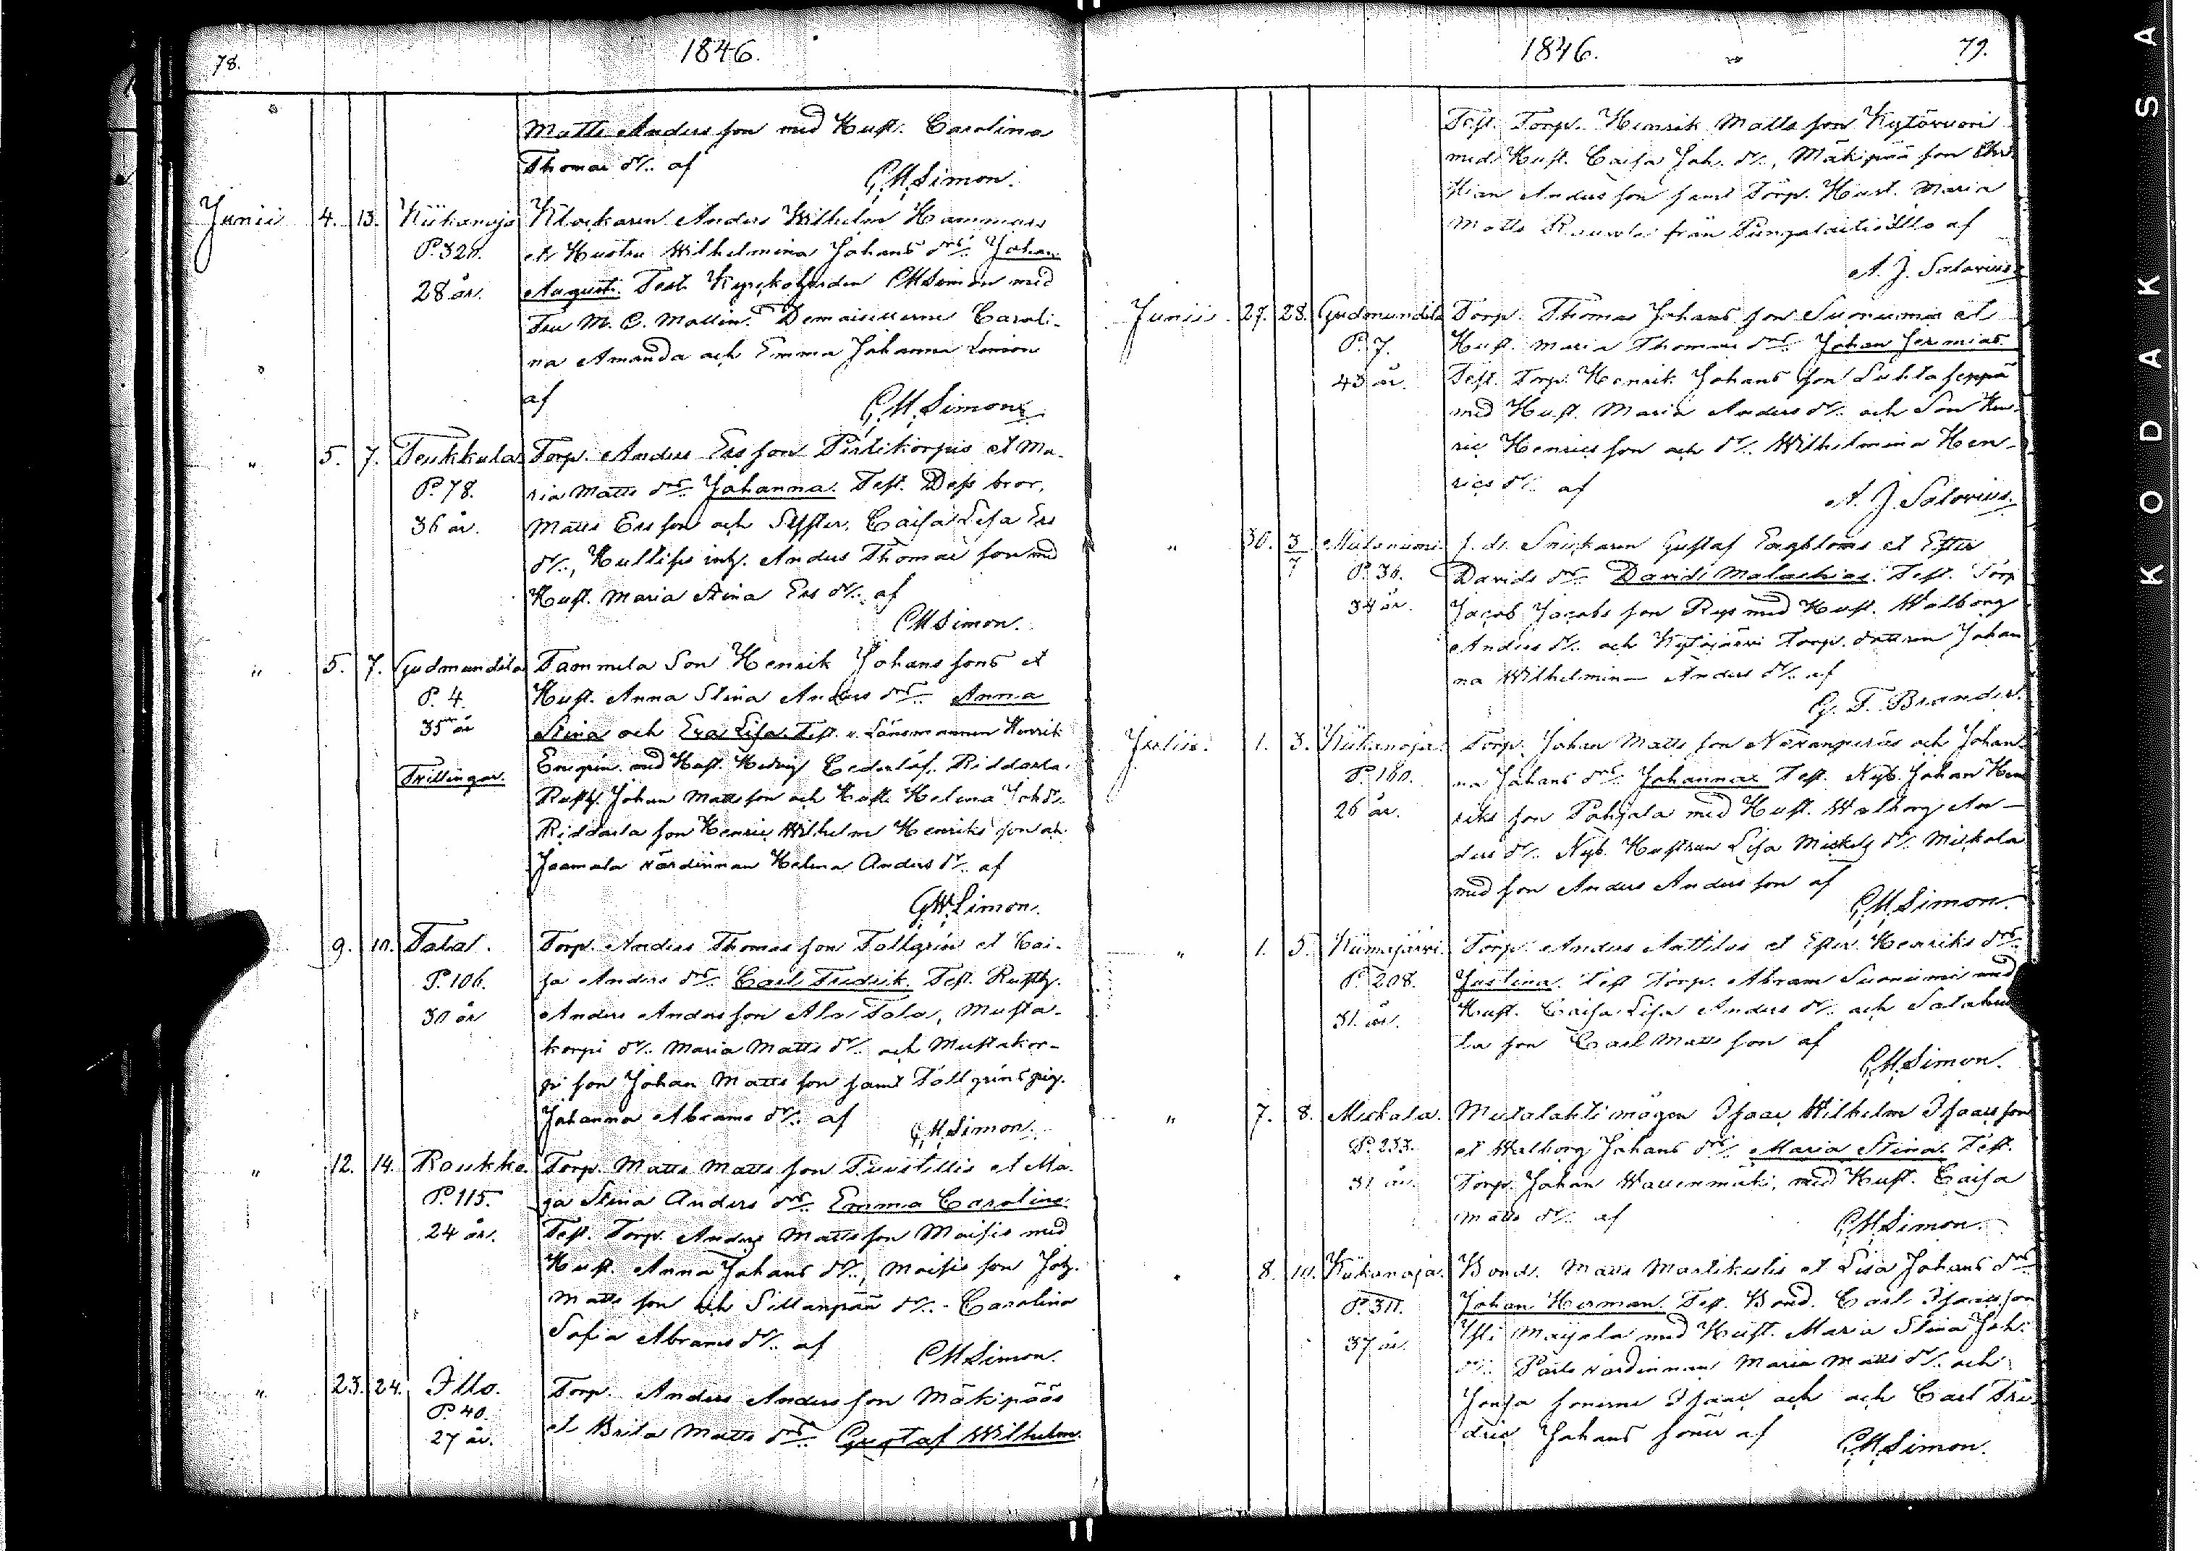 78.
1846.
Matts Anders son med Hust. Carolina
Thomae dr. af
GM Simon.
Junii 4. 13. Kiikanoja Klockaren Anders Wilhelm Hammars
P. 320. et Hustru Wilhelmina Johans drs Johan
28 år. August. Test. Kyrkoherden GM Simon med
Fru M. C. Mollin. Demoisellerne Caroli-
na Amanda och Emma Johanna Simon
af
GM Simon.
" 5. 7. Teukkula Torp. Anders Ers son Pirttikorpis et Ma-
P. 78. ria Matts drs Johanna. Test. Dess bror,
36 år. Matts Ers son och Syster, Caisa Lisa Ers
dr., Anders Thomae son med
Hust. Maria Stina Ers dr. af
GM Simon.
" 5. 7. Gudmundila Tammela Son Henrik Johans sons et
P. 4. Hust. Anna Stina Anders drs Anna
35 år Stina och Eva Lisa. Test. v. Länsmannen Henrik
Trillingar. Enegren med Hust. Hedvig Cederlöf, Riddarla
Rusth. Johan Matts son och Hust. Helena Joh. dr.
Riddarla son Henric Wilhelm Henriks son och
Jaamala värdinnan Helena Anders dr. af
GM Simon.
9. 10. Tala. Torp. Anders Thomas son Tallgrén et Cai-
P. 106. sa Anders drs Carl Fredrik. Test. Rusth.
30 år Anders Anders son Ala Tala, Musta-
korpi dr. Maria Matts dr. och Mustakor-
pi son Johan Matts son samt Tallgréns pig.
Johanna Abrams dr. af
GM Simon.
" 12. 14. Roukko. Torp. Matts Matts son et Ma-
P. 115. ja Stina Anders drs Emma Carolina
24 år. Test. Torp. Anders Matts son Maisis med
Hust. Anna Johans dr., Maisis son Joh.
Matts son och Sillanpää dr. Carolina
Sofia Abrams dr. af
GM Simon.
" 23. 24. Illo. Torp. Anders Anders son Mäkipääs
P. 40. et Brita Matts drs Gustaf Wilhelm
27 år.
1846.
79.
Test. Torp. Henrik Matts son Kytövuori
med Hust. Caisa Joh. dr., Mäkipää son Chri-
stian Anders son samt Torp. Hust. Maria
Matts från Illo af
A. J. Salovius.
Junii 27. 28. Gudmundila Torp. Thomas Johans son Suonumma et
P. 7. Hust. Maria Thomae drs Johan Jermias
43 år. Test. Torp. Henrik Johans son Suhtaseppä
med Hust. Maria Anders dr. och Son Hen-
ric Henrics son och dr. Wilhelmina Hen-
rics dr. af
A. J. Salovius.
" 30. 3/7 f. d. Snickaren Gustaf Engbloms et Ester
P. 36. Davids drs David Malachias. Test. Torp.
34 år. Jacob Jacobs son Rys med Hust. Walborg
Anders dr. och Kytöjärvi Torp. dottren Johan
na Wilhelmina Anders dr. af
G. F. Brander.
Julii. 1. 3. Kiikanoja. Torp. Johan Matts son och Johan
P. 160. na Johans drs Johanna. Test. Nyb. Johan Hen
26 år. riks son Pahjala med Hust. Walborg An-
ders dr. Nyb. Hustrun Lisa Mickels dr. Miekala
med son Anders Anders son af
GM Simon.
" 1. 5. Kiimajärvi. Torp. Anders Anttilas et Ester Henriks drs
P. 208. Justina. Test. Torp. Abram Suoniemi med
31 år. Hust. Caisa Lisa Anders dr. och Satahu
la son Carl Matts son af
GM Simon.
" 7. 8. Miekala. Mustalahti mågen Isaac Wilhelm Isacs son
P. 233. et Walborg Johans drs Maria Stina. Test.
31 år. Torp. Johan Wauenmäki, med Hust. Caisa
Matts dr. af
GM Simon.
" 8. 10. Kiikanoja. Bond. Matts Martikulis et Lisa Johans drs
P. 311. Johan Herman. Test. Bond. Carl Isaacs son
37 år. Yli Maijala med Hust. Maria Stina Joh.
dr. värdinnan Maria Matts dr. och
Jonsa sonerne Isaac och och Carl Fre
dric Johans söner af
GM Simon.
KODAK SA